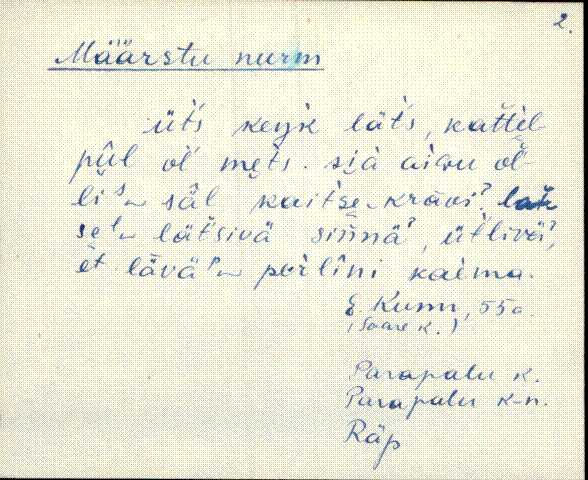 2.
Määrstu nurm
üt's keŋk lät's, kattel
pūl ol' mets. sjā aigu ol-
li's säl kaitse-krāvi? lat-
se' lätsivä sinnä?, ütlivä?,
et lävä' perlini kaema.
E. Kunn, 55 a.
(Soare k.)
Parapalu k.
Parapalu k-n.
Räp